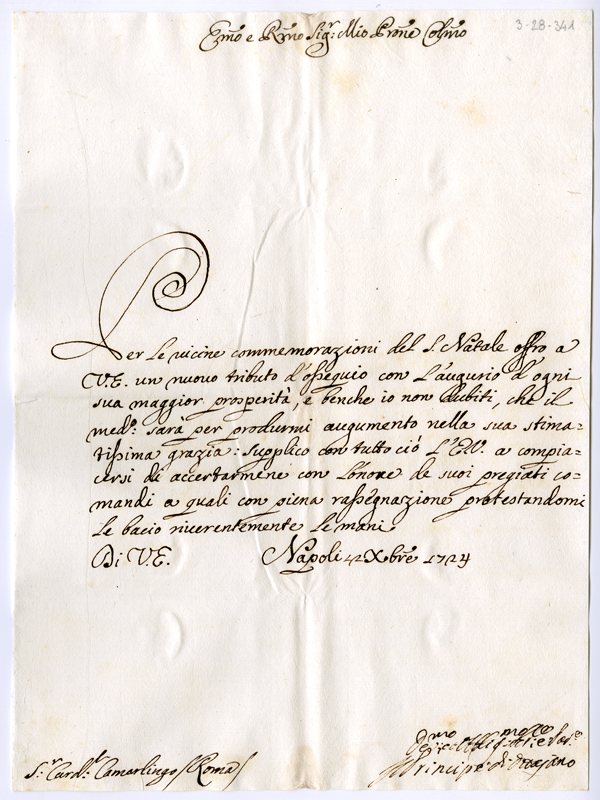 Emo e Rmo Sigr: Mio Prone Colmo
3-28-341
Per le vicine commemorazioni del S. Natale offro a
V.E. un nuovo tributo d'ossequio con l'augurio d'ogni
sua maggior prosperità, e benche io non dubiti, che il
medo: sarà per produrmi augumento nella sua stima=
tissima grazia: supplico con tutto ciò l'E.V. a compia=
cersi di accertarmene con l'onore de suoi pregiati co=
mandi a quali con piena rassegnazione protestandomi
le bacio riverentemente le mani
Di V.E. Napoli 12 Xbre 1724
Principe di Ottajano
S.r Card.l Camarlingo (Roma)